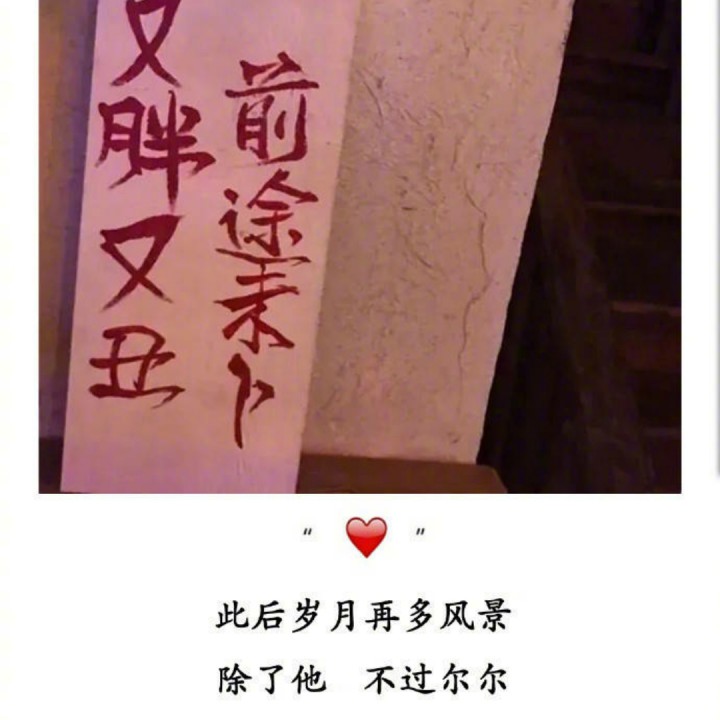 前途未卜
又胖又丑
“ ❤️ ”
此后岁月再多风景
除了他 不过尔尔